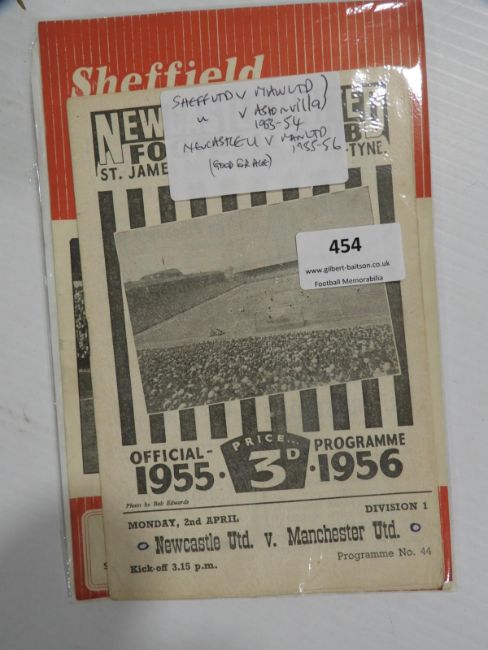 Sheffield
SHEFF UTD V MAN UTD
" V ASTON VILLA
1953-54
NEWCASTLE U V MAN UTD
1955-56
(GOOD GRADE)
NEW
FO
ST. JAME
TYNE.
454
www.gilbert-baitson.co.uk
Football Memorabilia
OFFICIAL- PRICE... PROGRAMME
1955· 3D ·1956
Photo by Bob Edwards
MONDAY, 2nd APRIL DIVISION 1
Newcastle Utd. v. Manchester Utd.
Programme No. 44
Kick-off 3.15 p.m.